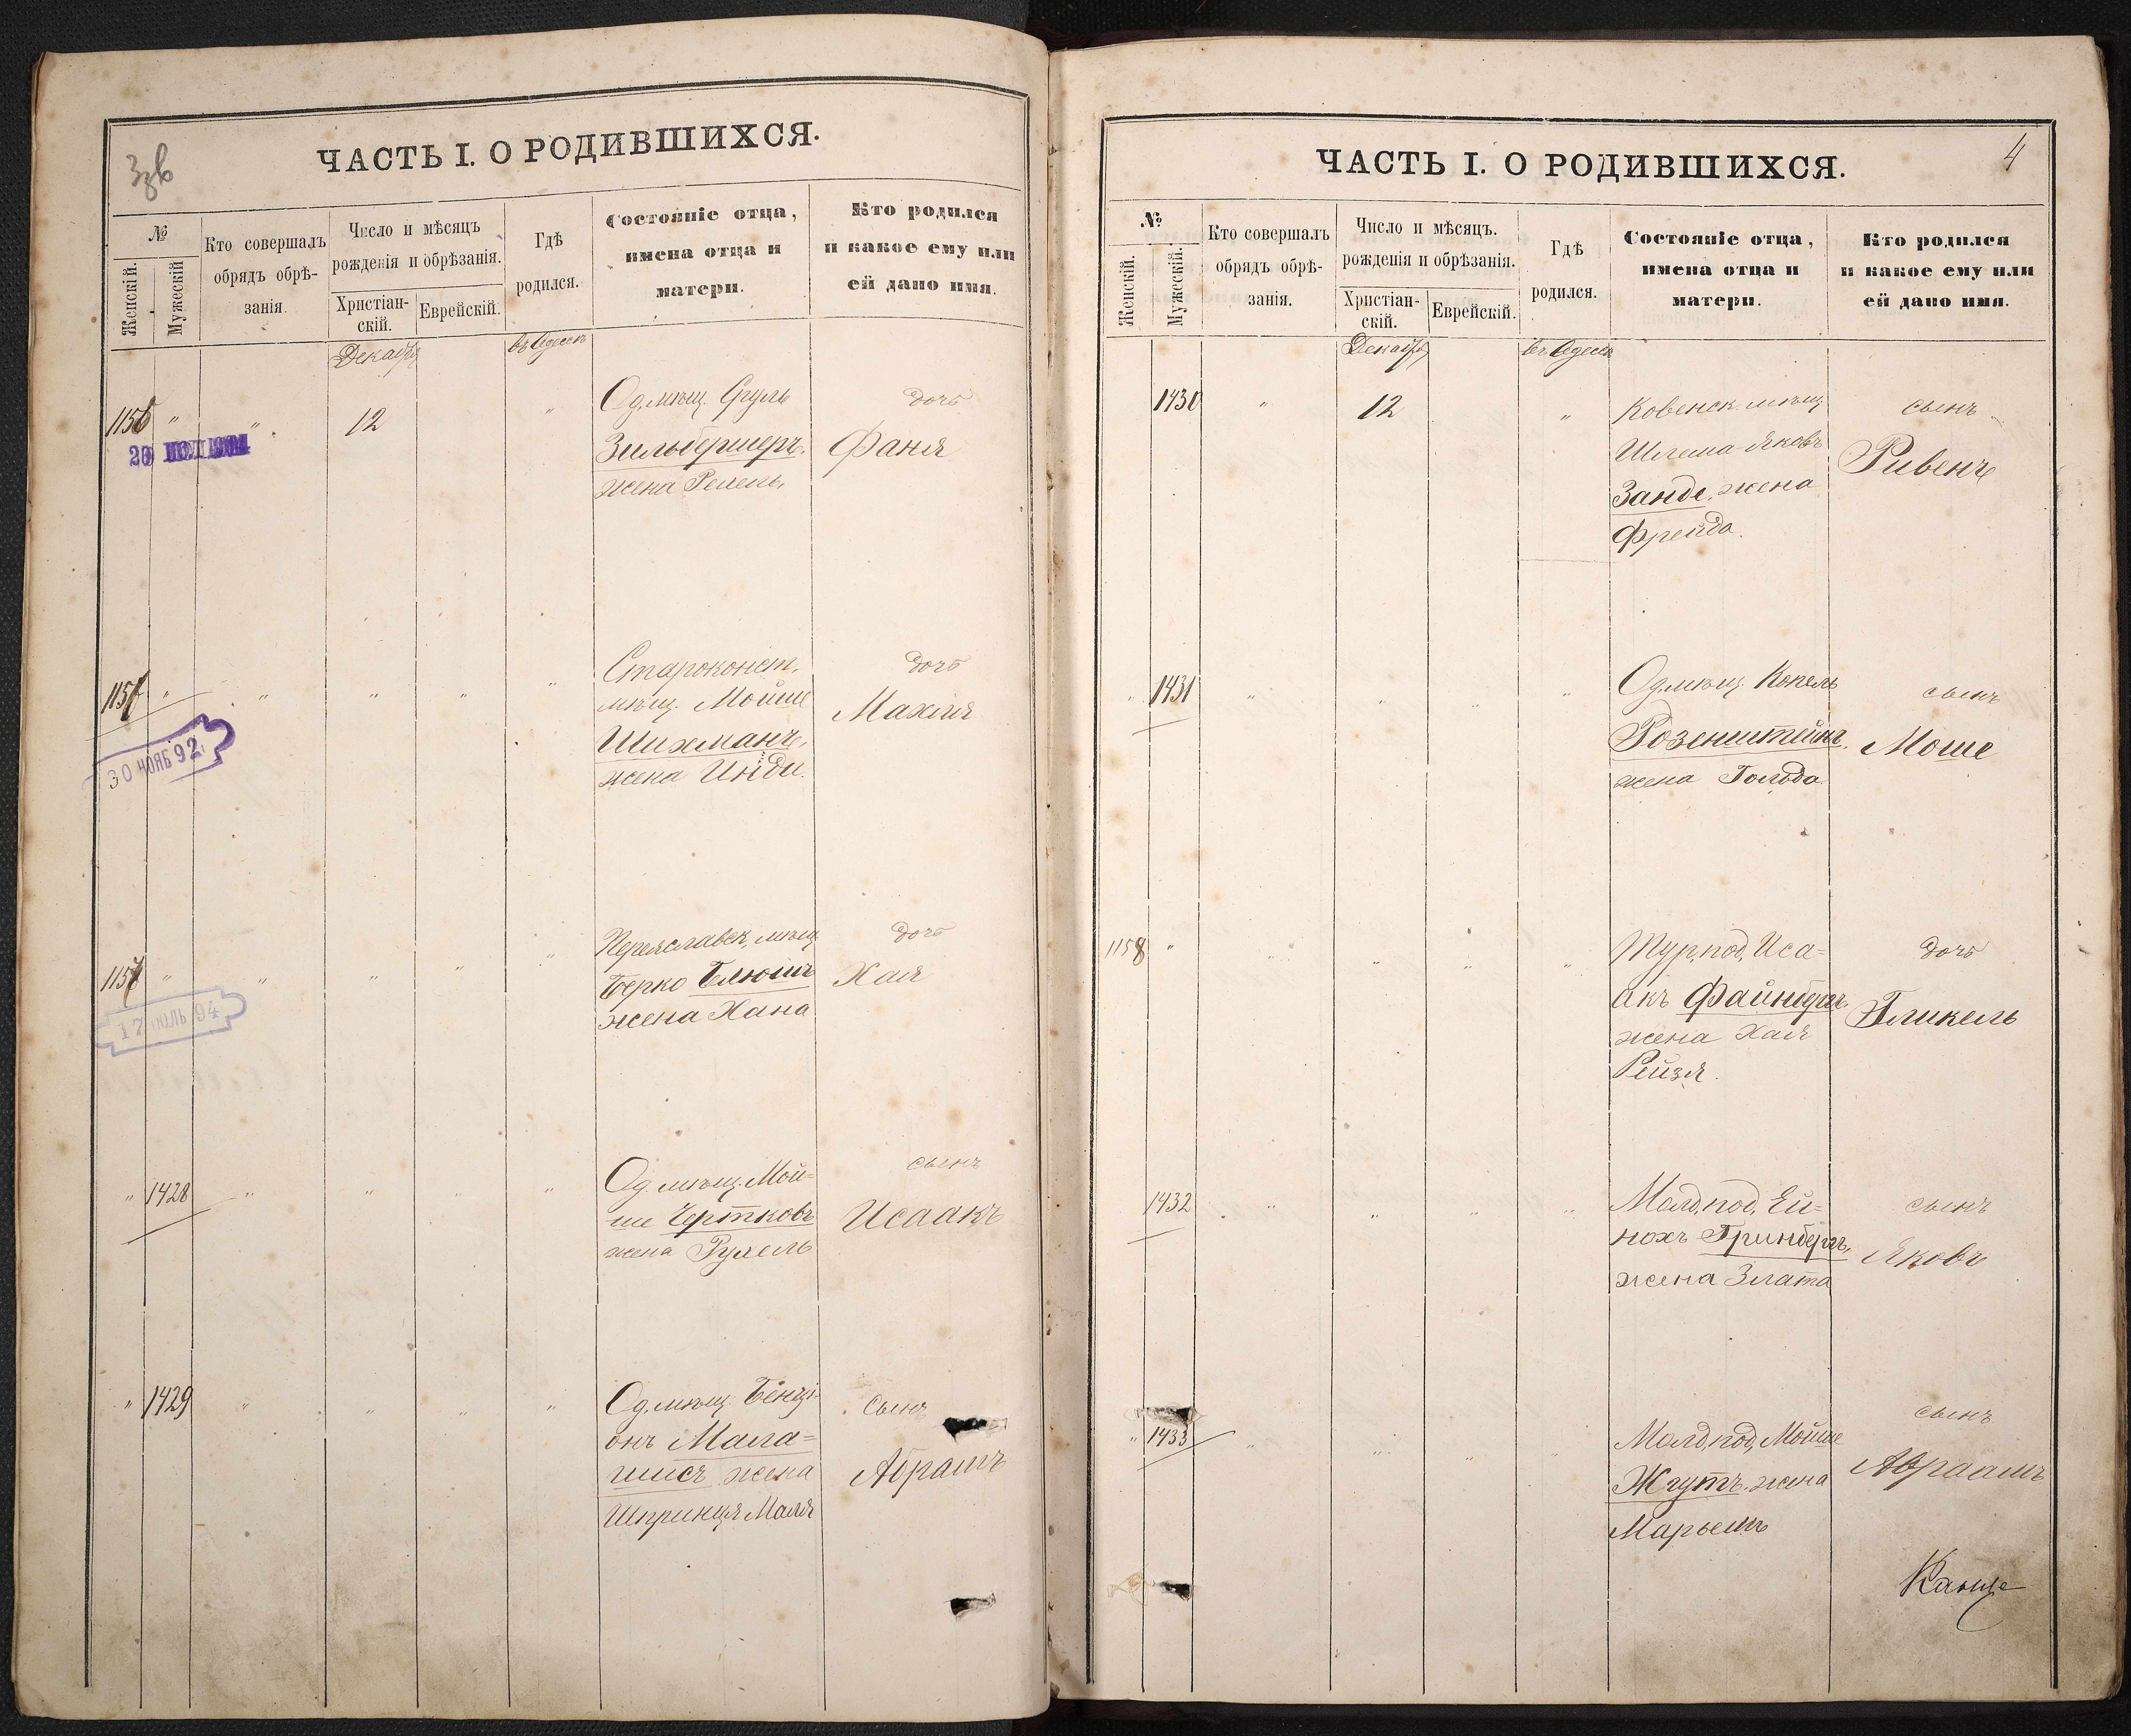 ЧАСТЬ I. О РОДИВШИХСЯ.
№
Женскій.
Мужескій
Кто совершалъ
обрядъ обрѣ-
занія.
Число и мѣсяцъ
рожденія и обрѣзанія.
Христіан-
скій.
Еврейскій.
Гдѣ
родился.
Состояніе отца,
имена отца и
матери.
Кто родился
и какое ему или
ей дано имя.
Декабрь
въ Одессѣ
1156 " " 12 "
Од. мѣщ. Сруль
Зильберберъ,
жена
дочь
Фаня
115 " " " " "
Староконст.
мѣщ. Мойше
Шихманъ,
жена Инди.
дочь
Махля
30 НОЯБ 92
1157 " " " " "
Переяславск. мѣщ.
Берко Блюмъ
жена Хана
дочь
Хая
17 ІЮЛЬ 94
" 1428 " " " "
Од. мѣщ. Мой=
ше Чертковъ
жена Рухель
сынъ
Исаакъ
" 1429 " " " "
Од. мѣщ. Бенці-
онъ Мала=
шисъ жена
Шпринця Маля
сынъ
Абрамъ
ЧАСТЬ I. О РОДИВШИХСЯ.
4
№
Женскій.
Мужескій.
Кто совершалъ
обрядъ обрѣ-
занія.
Число и мѣсяцъ.
рожденія и обрѣзанія.
Христіан-
скій.
Еврейскій.
Гдѣ
родился.
Состояніе отца,
имена отца и
матери.
Кто родился
и какое ему или
ей дано имя.
Декабрь
въ Одессѣ
1430 " 12 "
Ковенск. мѣщ.
Шлема Яковъ
Занде, жена
Фрейда.
сынъ
Ривенъ
" 1431 " " " "
Од. мѣщ. Копель
Розенштейнъ,
жена Гольда
сынъ
Моше
1158 " " " " "
Тур. под. Иса=
акъ Файнбергъ,
жена Хая
Рейзя.
дочь
Гликель
1432 " " " "
Молд. под. Ей=
нохъ Гринбергъ,
жена Злата
сынъ
Яковъ
" 1433 " " " "
Молд. под. Мойше
Жгутъ, жена
Марьемъ
сынъ
Авраамъ